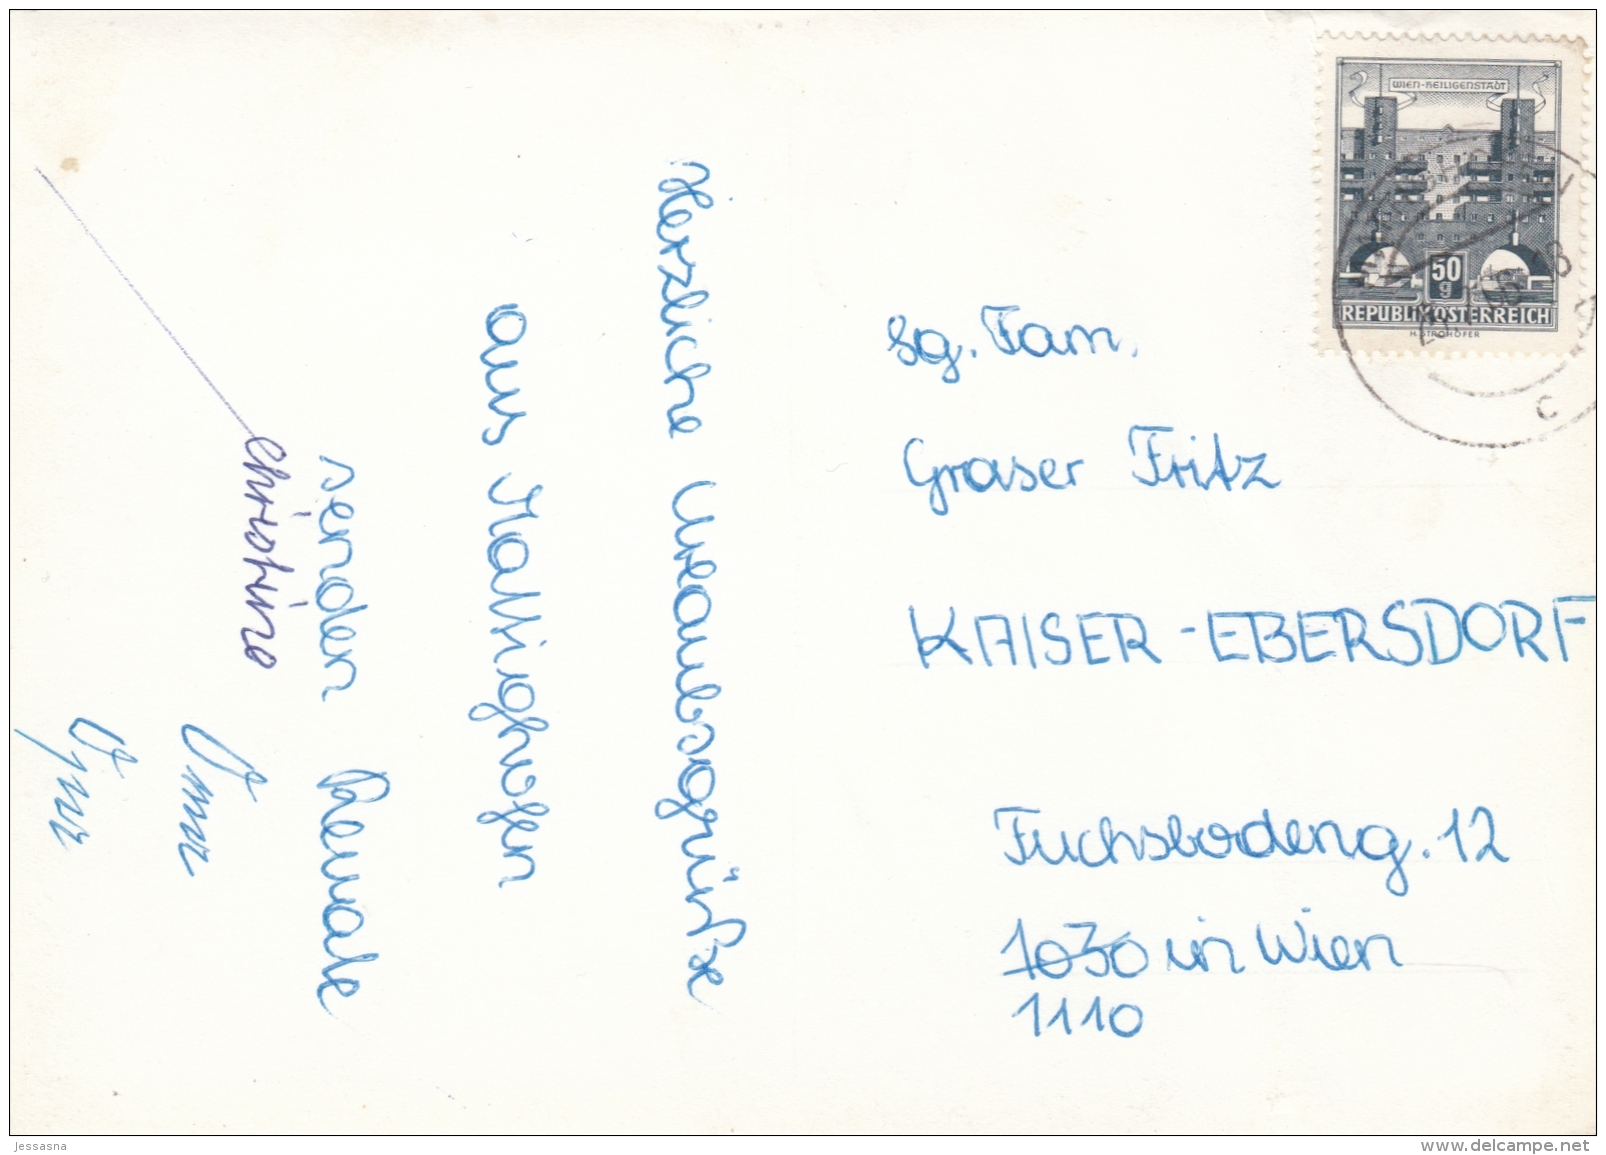 Herzliche Urlaubsgrüße
aus Mattighofen
senden Renate
Christine
Oma
Opa
WIEN-HEILIGENSTADT
50
g
REPUBLIK ÖSTERREICH
H. STROHOFER
C
Sg. Fam.
Graser Fritz
KAISER-EBERSDORF
Fuchsbodeng. 12
1030 in Wien
1110
jessasna
www.delcampe.net